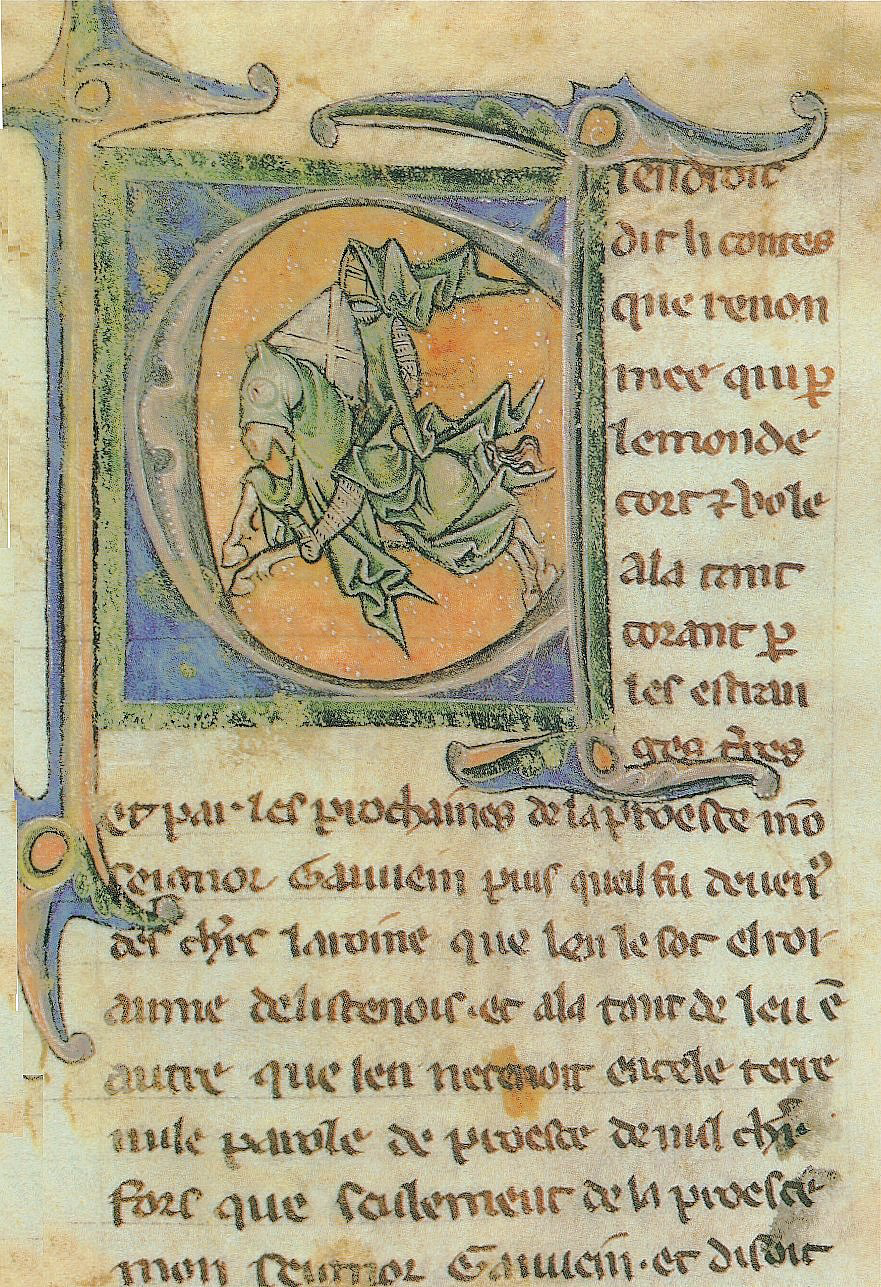 iendroit
dit li contes
que renon
mee qui ꝑ
le monde
cort ⁊ vole
ala tant
corant ꝑ
les estran
ges t̃res
et par les prochaines de la proesce mō
seignor Gauuein puis quil fu deuenꝰ
des ch̃rs la roine que len le sot el roi
aume delistenois · et ala tant de leu ē
autre que len ne tenoit en cele terre
nule parole de proesce de nul ch̃r
fors que seulement de la proesce
mon seignor Gauuein · et disoit